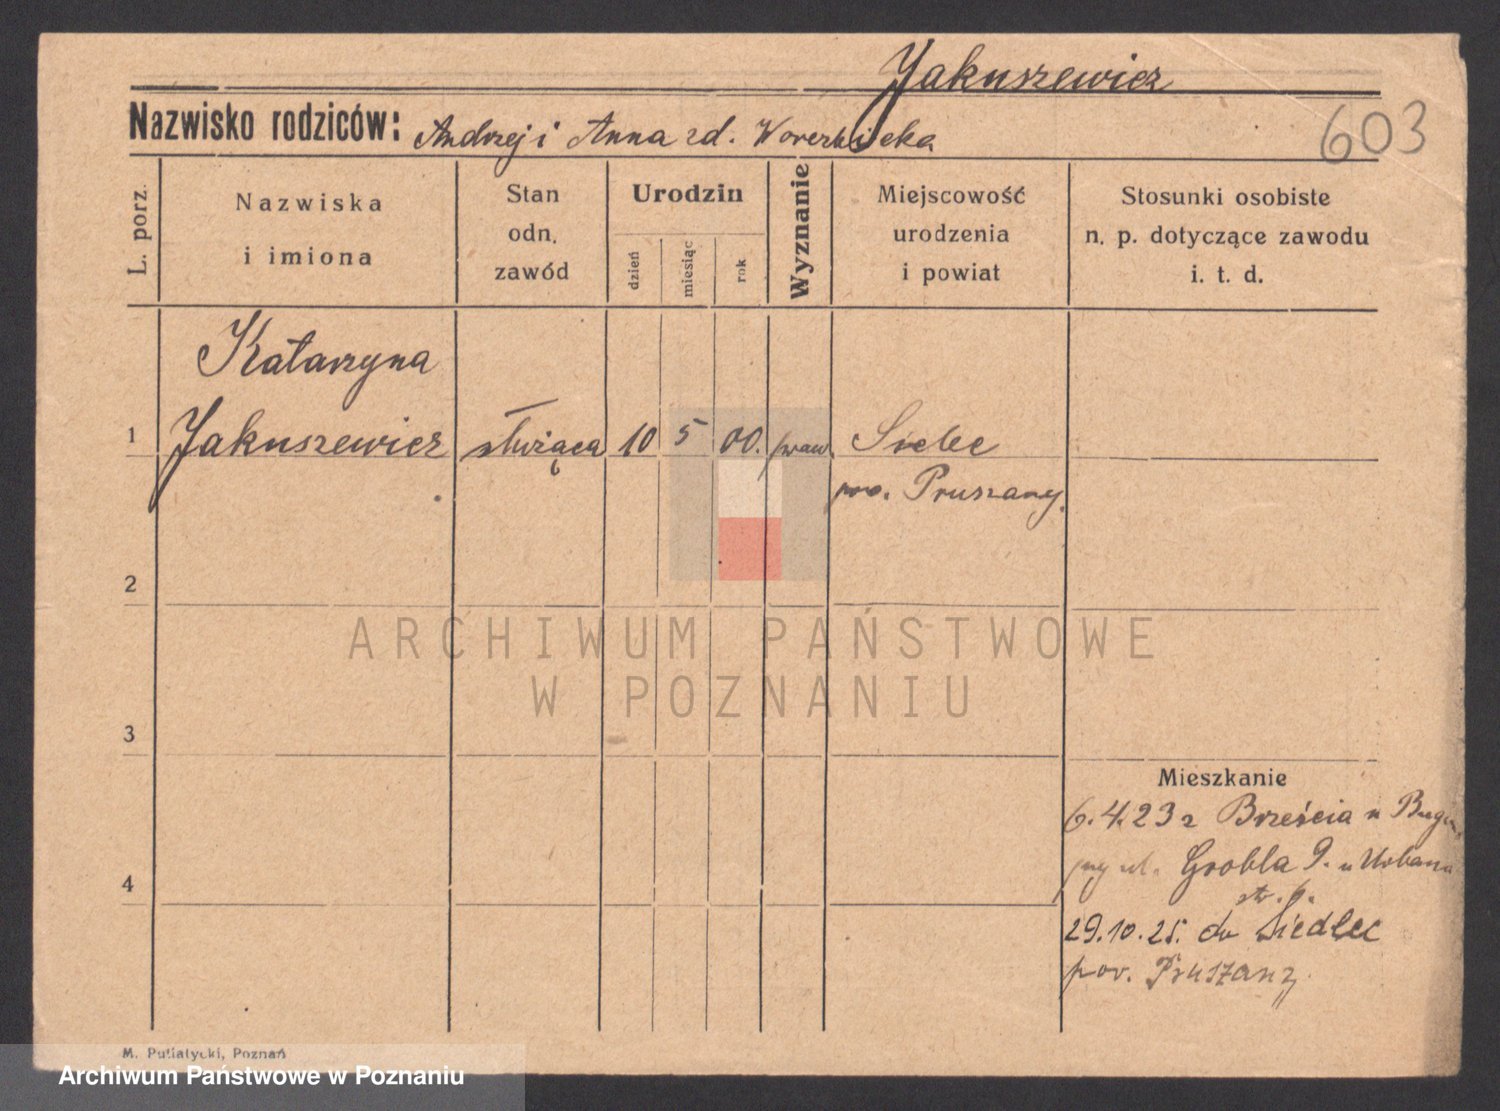 Jakuszewicz
Nazwisko rodziców: Andrzej i Anna zd.
603
L. porz.
Nazwiska
i imiona
Stan
odn.
zawód
Urodzin
dzień
miesiąc
rok
Wyznanie
Miejscowość
urodzenia
i powiat
Stosunki osobiste
n. p. dotyczące zawodu
i. t. d.
Katarzyna
1 Jakuszewicz służąca 10 5 00. praw
pow. Pruszany.
2
ARCHIWUM PAŃSTWOWE
W POZNANIU
3
Mieszkanie
6.4.23 z Brześcia n Bugiem
ul. Grobla 9. u Urbana
str. 6.
4
29.10.25. do Siedlec
pov. Pruszany
M. Putiatycki, Poznań
Archiwum Państwowe w Poznaniu